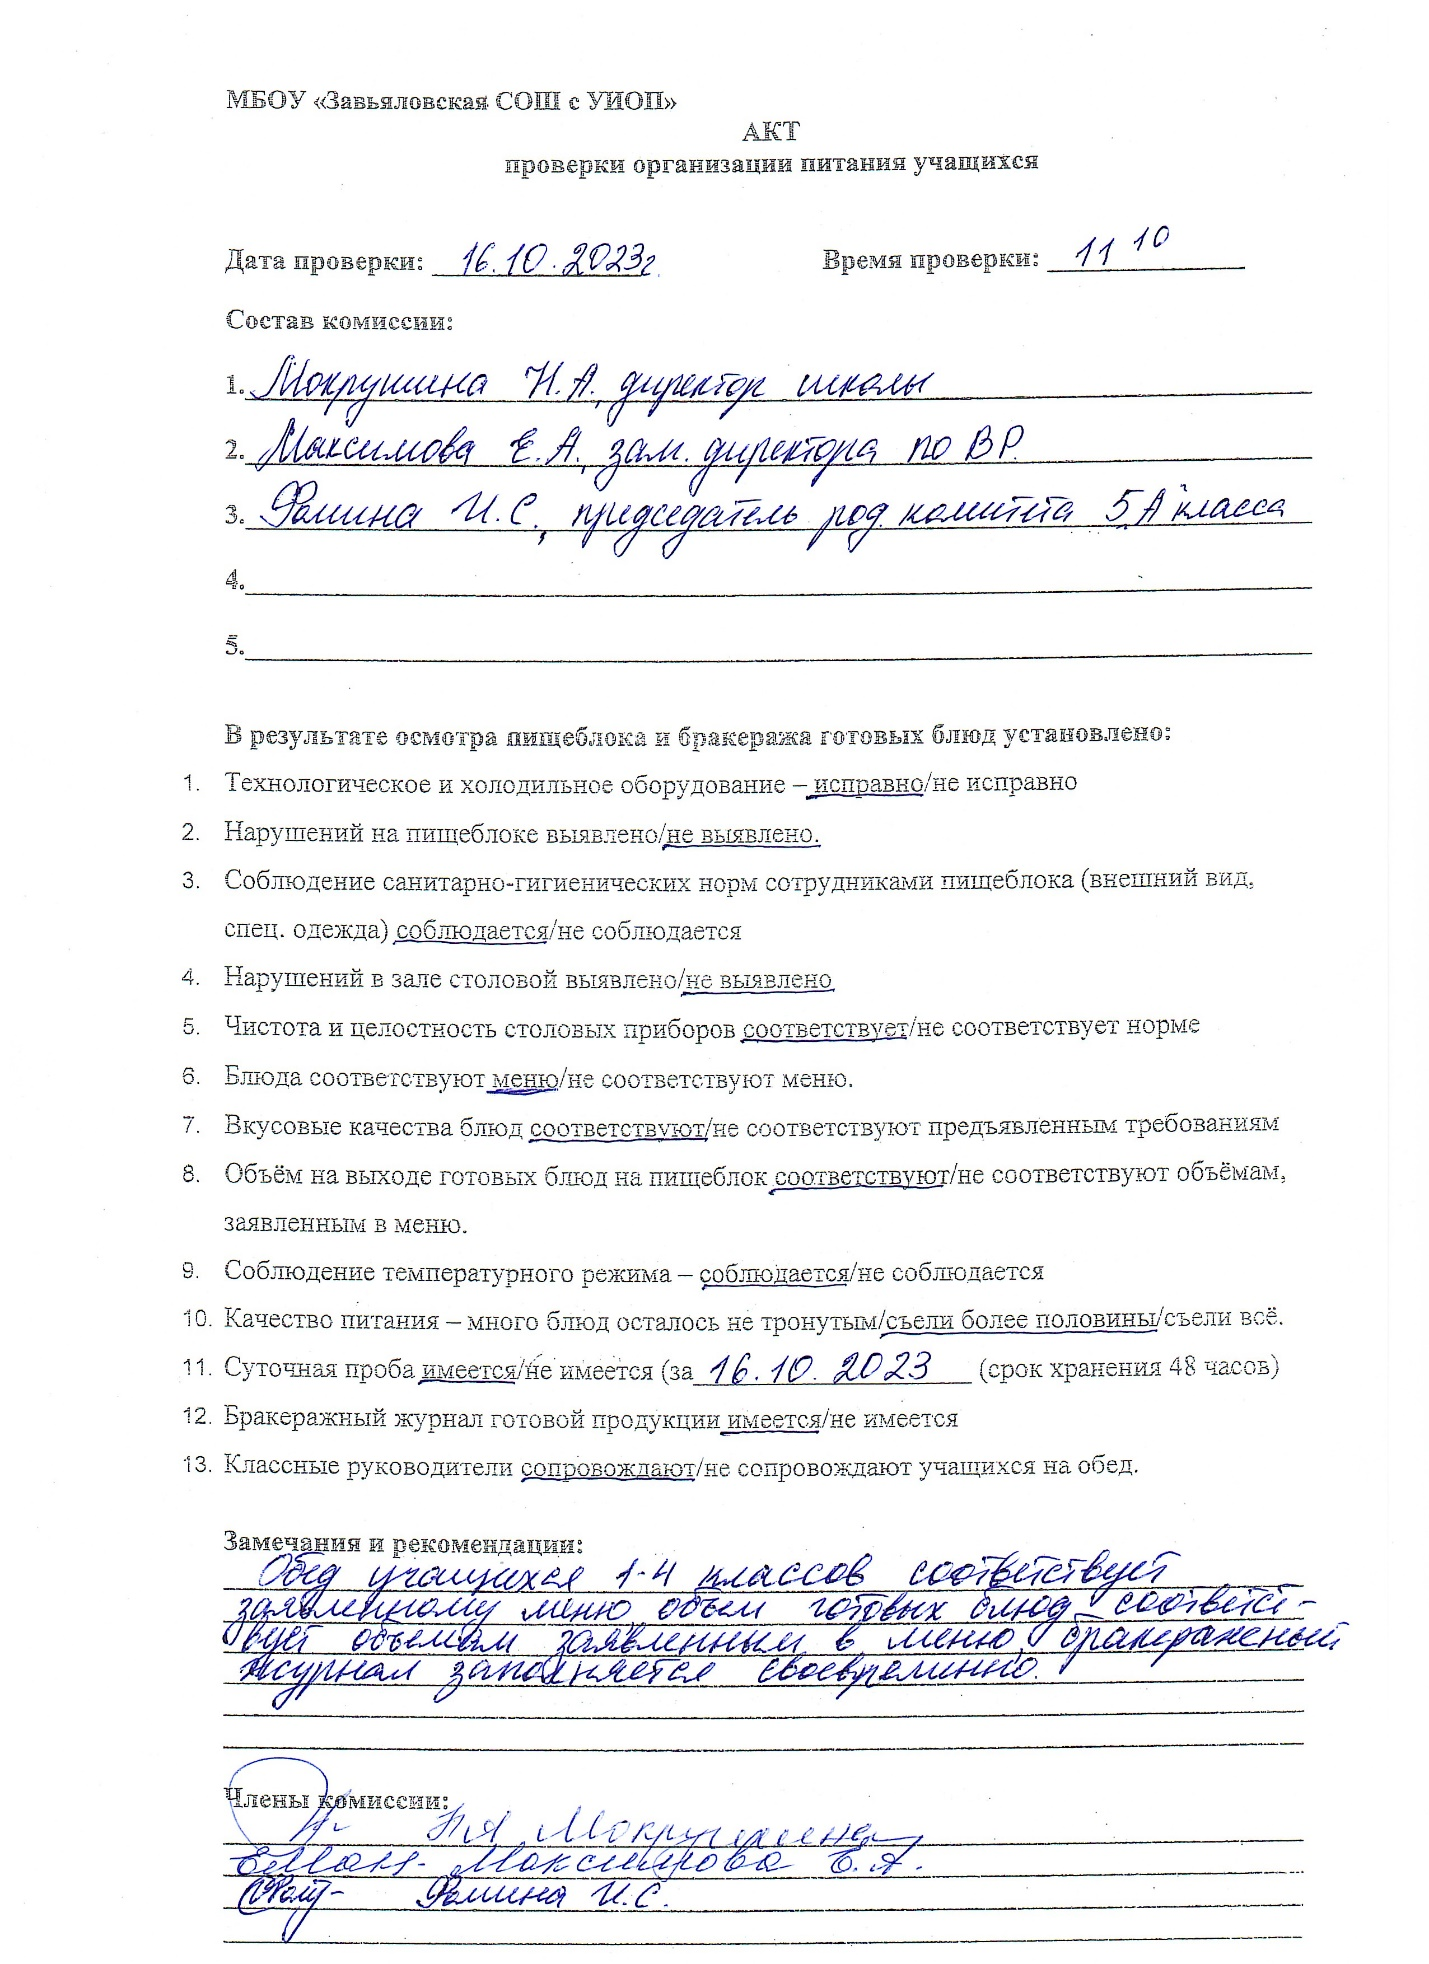 МБОУ «Завьяловская СОШ с УИОП»
АКТ
проверки организации питания учащихся
Дата проверки: 16.10.2023г. Время проверки: 11 10
Состав комиссии:
1. Мокрушина Н.А., директор школы
2. Максимова Е.А., зам. директора по ВР.
3. Фомина И.С., председатель род. комитета 5 "А" класса
4.
5.
В результате осмотра пищеблока и бракеража готовых блюд установлено:
1. Технологическое и холодильное оборудование – исправно/не исправно
2. Нарушений на пищеблоке выявлено/не выявлено.
3. Соблюдение санитарно-гигиенических норм сотрудниками пищеблока (внешний вид,
спец. одежда) соблюдается/не соблюдается
4. Нарушений в зале столовой выявлено/не выявлено
5. Чистота и целостность столовых приборов соответствует/не соответствует норме
6. Блюда соответствуют меню/не соответствуют меню.
7. Вкусовые качества блюд соответствуют/не соответствуют предъявленным требованиям
8. Объём на выходе готовых блюд на пищеблок соответствуют/не соответствуют объёмам,
заявленным в меню.
9. Соблюдение температурного режима – соблюдается/не соблюдается
10. Качество питания – много блюд осталось не тронутым/съели более половины/съели всё.
11. Суточная проба имеется/не имеется (за 16.10.2023 (срок хранения 48 часов)
12. Бракеражный журнал готовой продукции имеется/не имеется
13. Классные руководители сопровождают/не сопровождают учащихся на обед.
Замечания и рекомендации:
Обед учащихся 1-4 классов соответствует
заявленному меню, объем готовых блюд соответст-
вует объемам, заявленным в меню, бракеражный
журнал заполняется своевременно.
Члены комиссии:
НА Мокрушина
Максимова Е.А.
Фомина И.С.